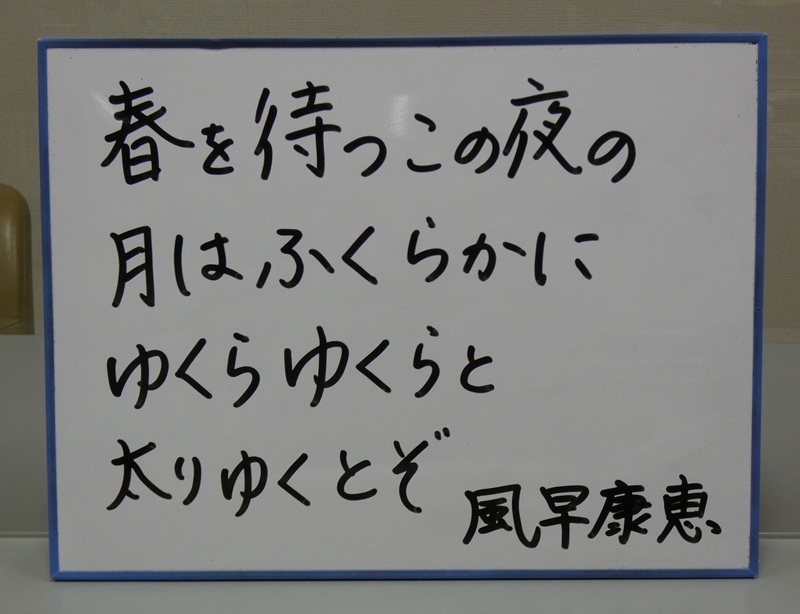 春を待つこの夜の
月はふくらかに
ゆくらゆくらと
太りゆくとぞ
風早康恵